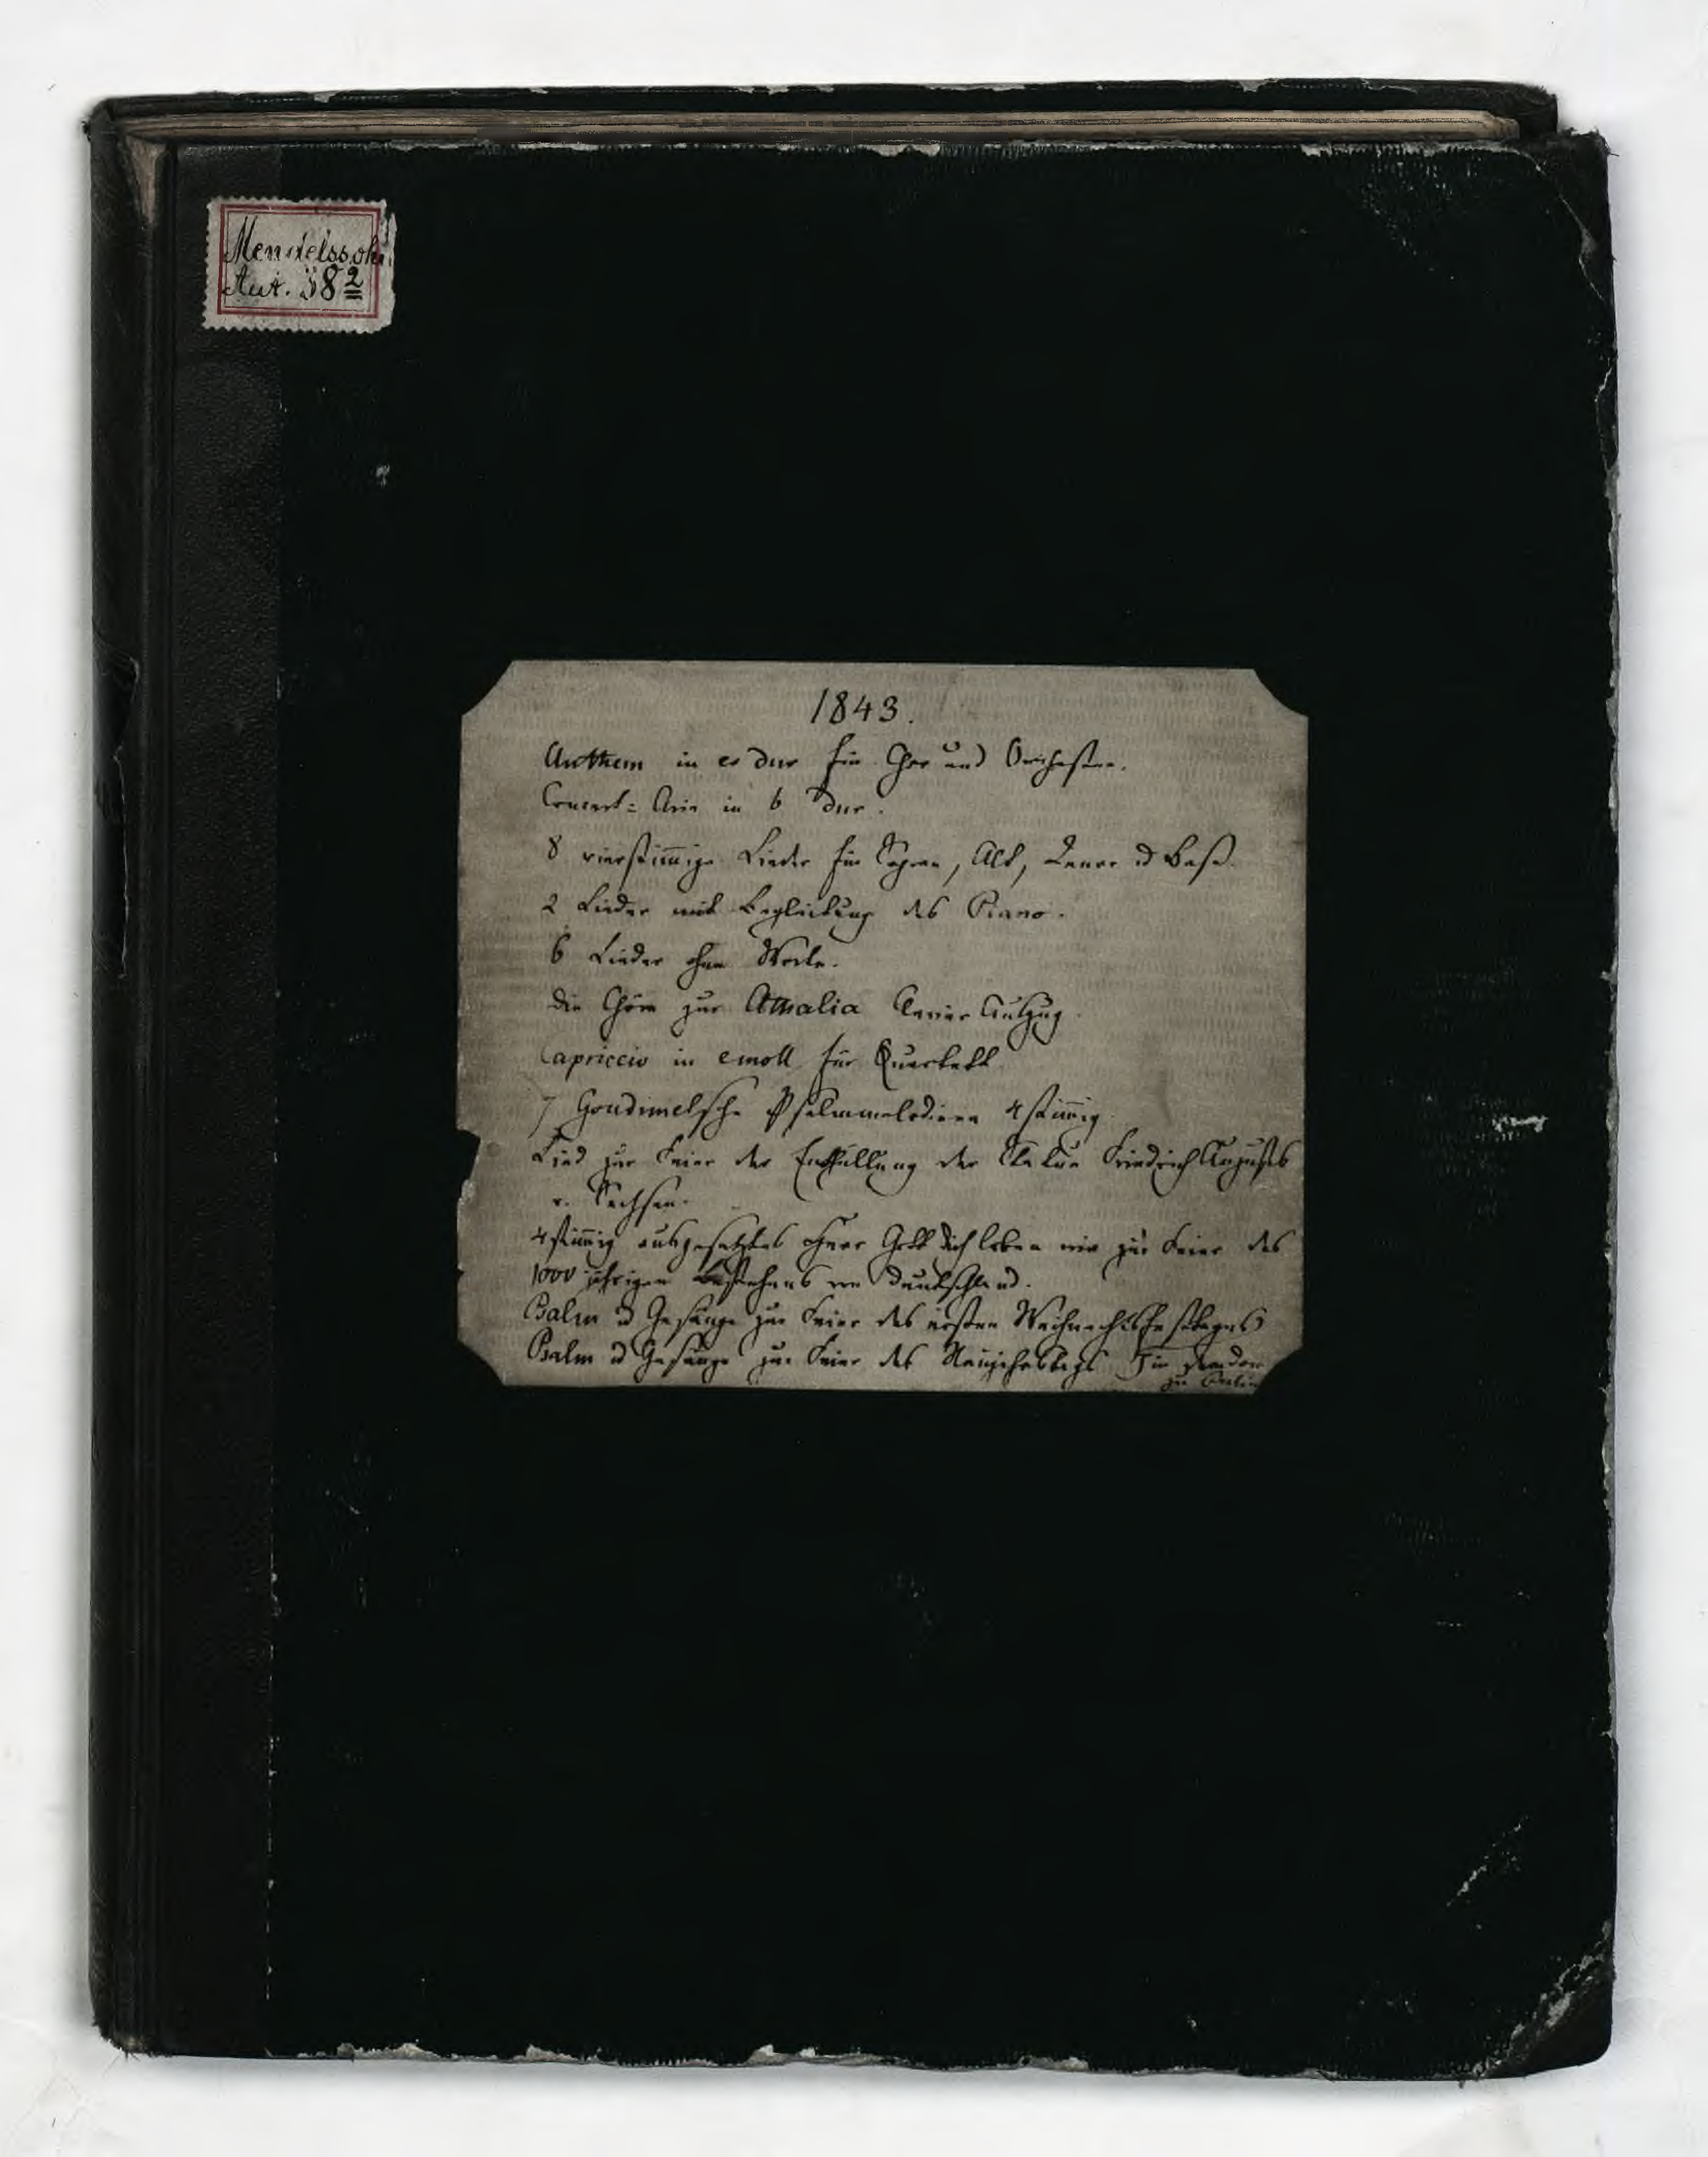 Mendelssohn
Aut. 38²
1843.
Anthem in es dur für Chor und Orchester.
Concert= Arie in b dur.
8 vierstim̄ige Lieder für Sopran, Alt, Tenor u Baß.
2 Lieder mit Begleitung des Piano.
6 Lieder ohne Worte.
die Chöre zur Athalia Clavier Auszug.
Capriccio in emoll für Quartett
7 Goudimelsche Psalmmelodieen 4stim̄ig.
Lied zur Feier der Enthüllung der Statue Friedrich Augusts
v. Sachsen.
4stim̄ig ausgesetztes Herr Gott dich loben wir zur Feier des
1000 jährigen Bestehens von Deutschland.
Psalm u Gesänge zur Feier des ersten Weihnachtsfesttages
Psalm u Gesänge zur Feier des Neujahrstags
zu Berlin